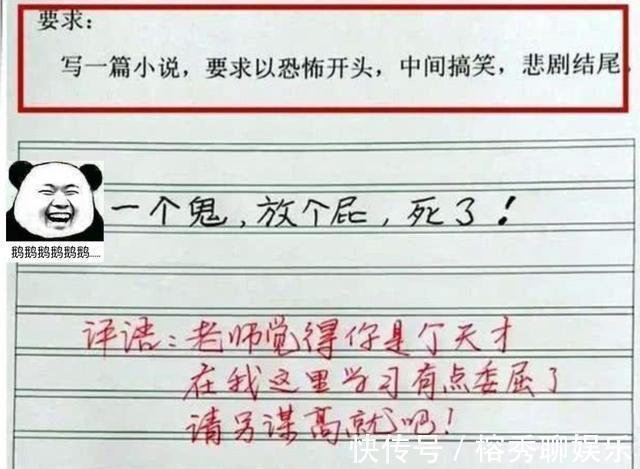 要求:
写一篇小说，要求以恐怖开头，中间搞笑，悲剧结尾。
一个鬼，放个屁，死了！
鹅鹅鹅鹅鹅鹅......
评语：老师觉得你是个天才
在我这里学习有点委屈了
请另谋高就吧！
快传号 / 榕秀聊娱乐